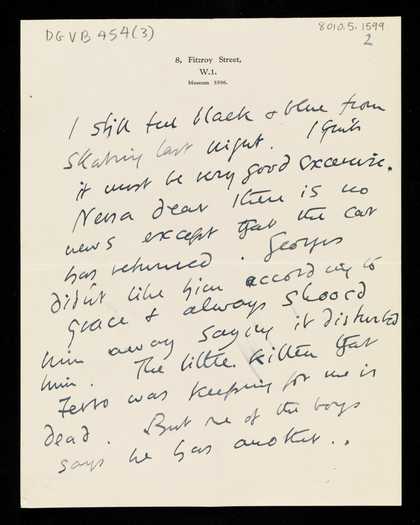 DGVB 454(3)
8010.5.1599
2
8, Fitzroy Street,
W.1.
Museum 1896.
I still feel black & blue from
Skating last night. I think
it must be very good exercise.
Nessa dear there is no
news except that the cat
has returned. Georges
didn't like him according to
Grace & always shooed
him away saying it disturbed
him. The little kitten that
was keeping for me is
dead. But one of the boys
says he has another..